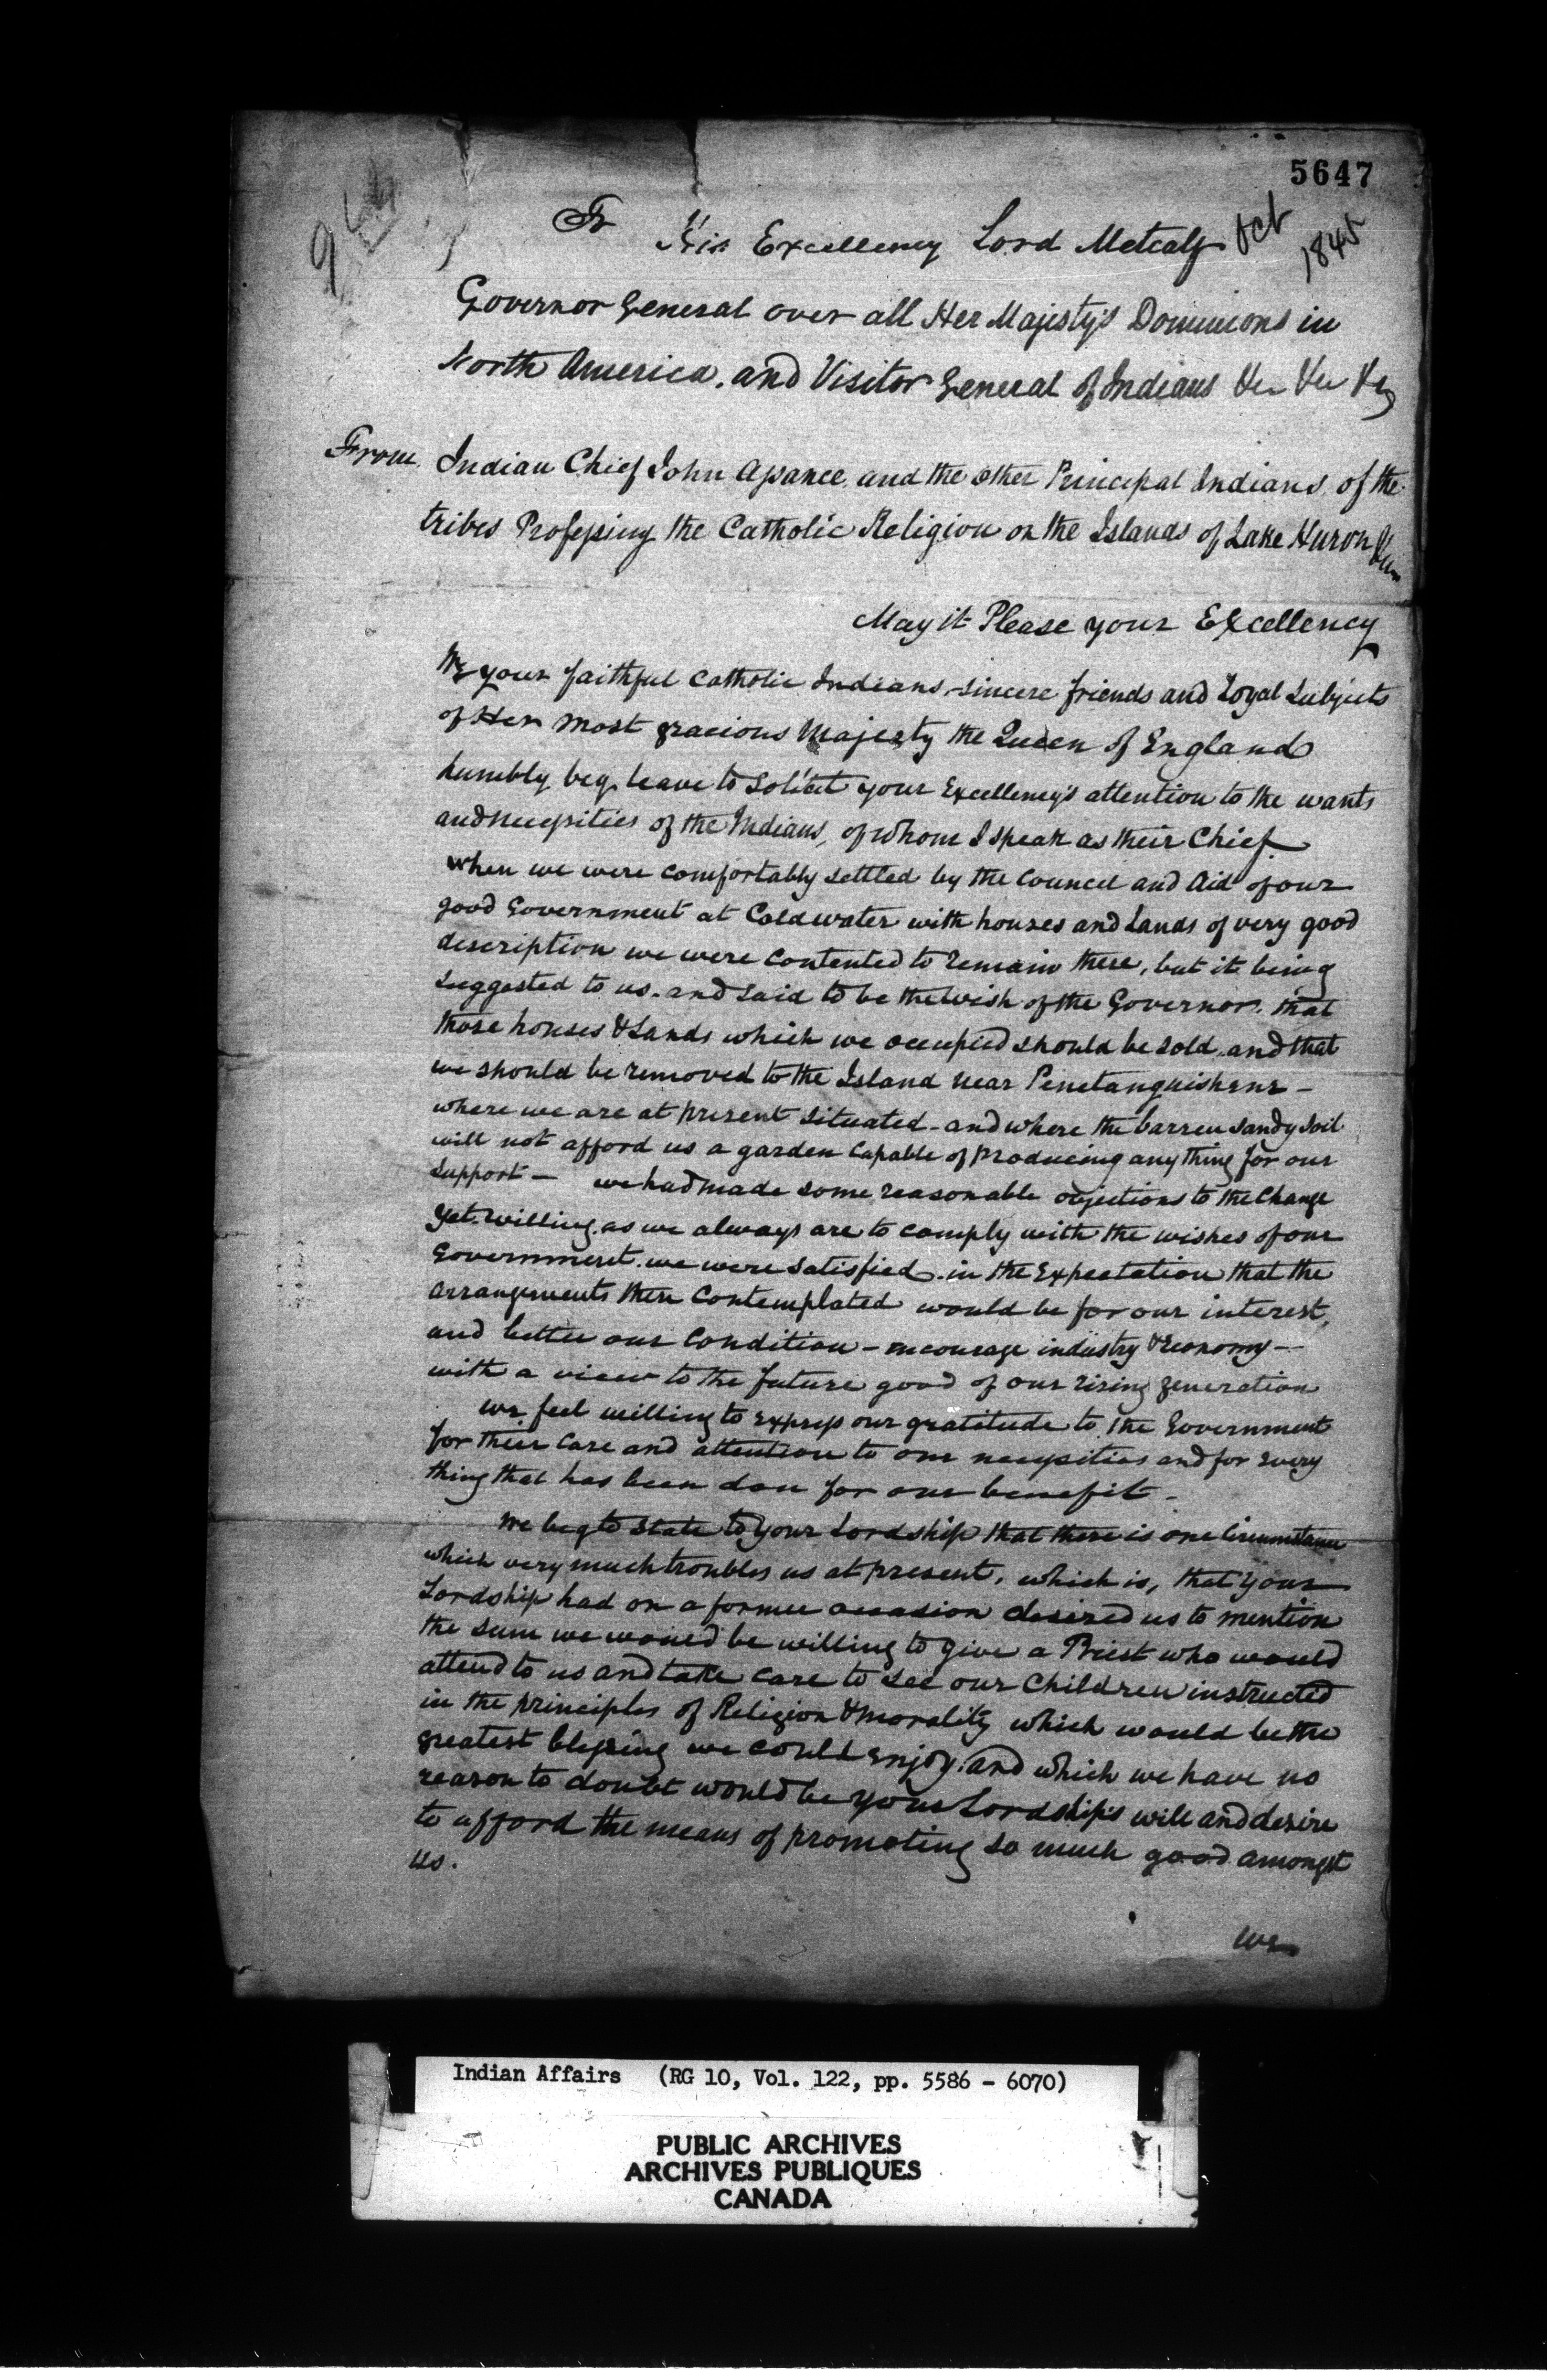 5647
Oct
1845
To His Excellency Lord Metcalf
Governor General over all Her Majesty's Dominions in
North America. and Visitor General of Indians &c &c &c
From Indian Chief John Apance and the other Principal Indians of the
tribes Professing the Catholic Religion on the Islands of Lake Huron &c
May it Please your Excellency
We your faithful Catholic Indians, sincere friends and Loyal Subjects
of Her most gracious Majesty the Queen of England
humbly beg leave to solicit your Excellency's attention to the wants
and necessities of the Indians, of whom I speak as their Chief.
when we were comfortably settled by the Council and Aid of our
good Government at Coldwater with houses and Lands of very good
description we were contented to remain there, but it being
suggested to us. and said to be the wish of the Governor. that
those houses & Lands which we occupied should be sold. and that
we should be removed to the Island near Penetanguishene -
where we are at present situated - and where the barren sandy soil
will not afford us a garden capable of producing any thing for our
support - we had made some reasonable objections to the Change
yet willing as we always are to comply with the wishes of our
Government. we were satisfied. in the Expectation that the
arrangements then Contemplated would be for our interest,
and better our Condition - encourage industry & Economy -
with a view to the future good of our rising generation
we feel willing to express our gratitude to the Government
for their Care and attention to our necessities and for Every
thing that has been don for our benefit -
We beg to State to your Lordship that there is one Circumstance
which very much troubles us at present, which is, that your
Lordship had on a former occasion desired us to mention
the sum we would be willing to give a Priest who would
attend to us and take care to see our Children instructed
in the principles of Religion & morality which would be the
greatest blessing we could Enjoy. and which we have no
reason to doubt would be your Lordship's will and desire
to afford the means of promoting so much good amongst
us.
We
Indian Affairs (RG 10, Vol. 122, pp. 5586 - 6070)
PUBLIC ARCHIVES
ARCHIVES PUBLIQUES
CANADA